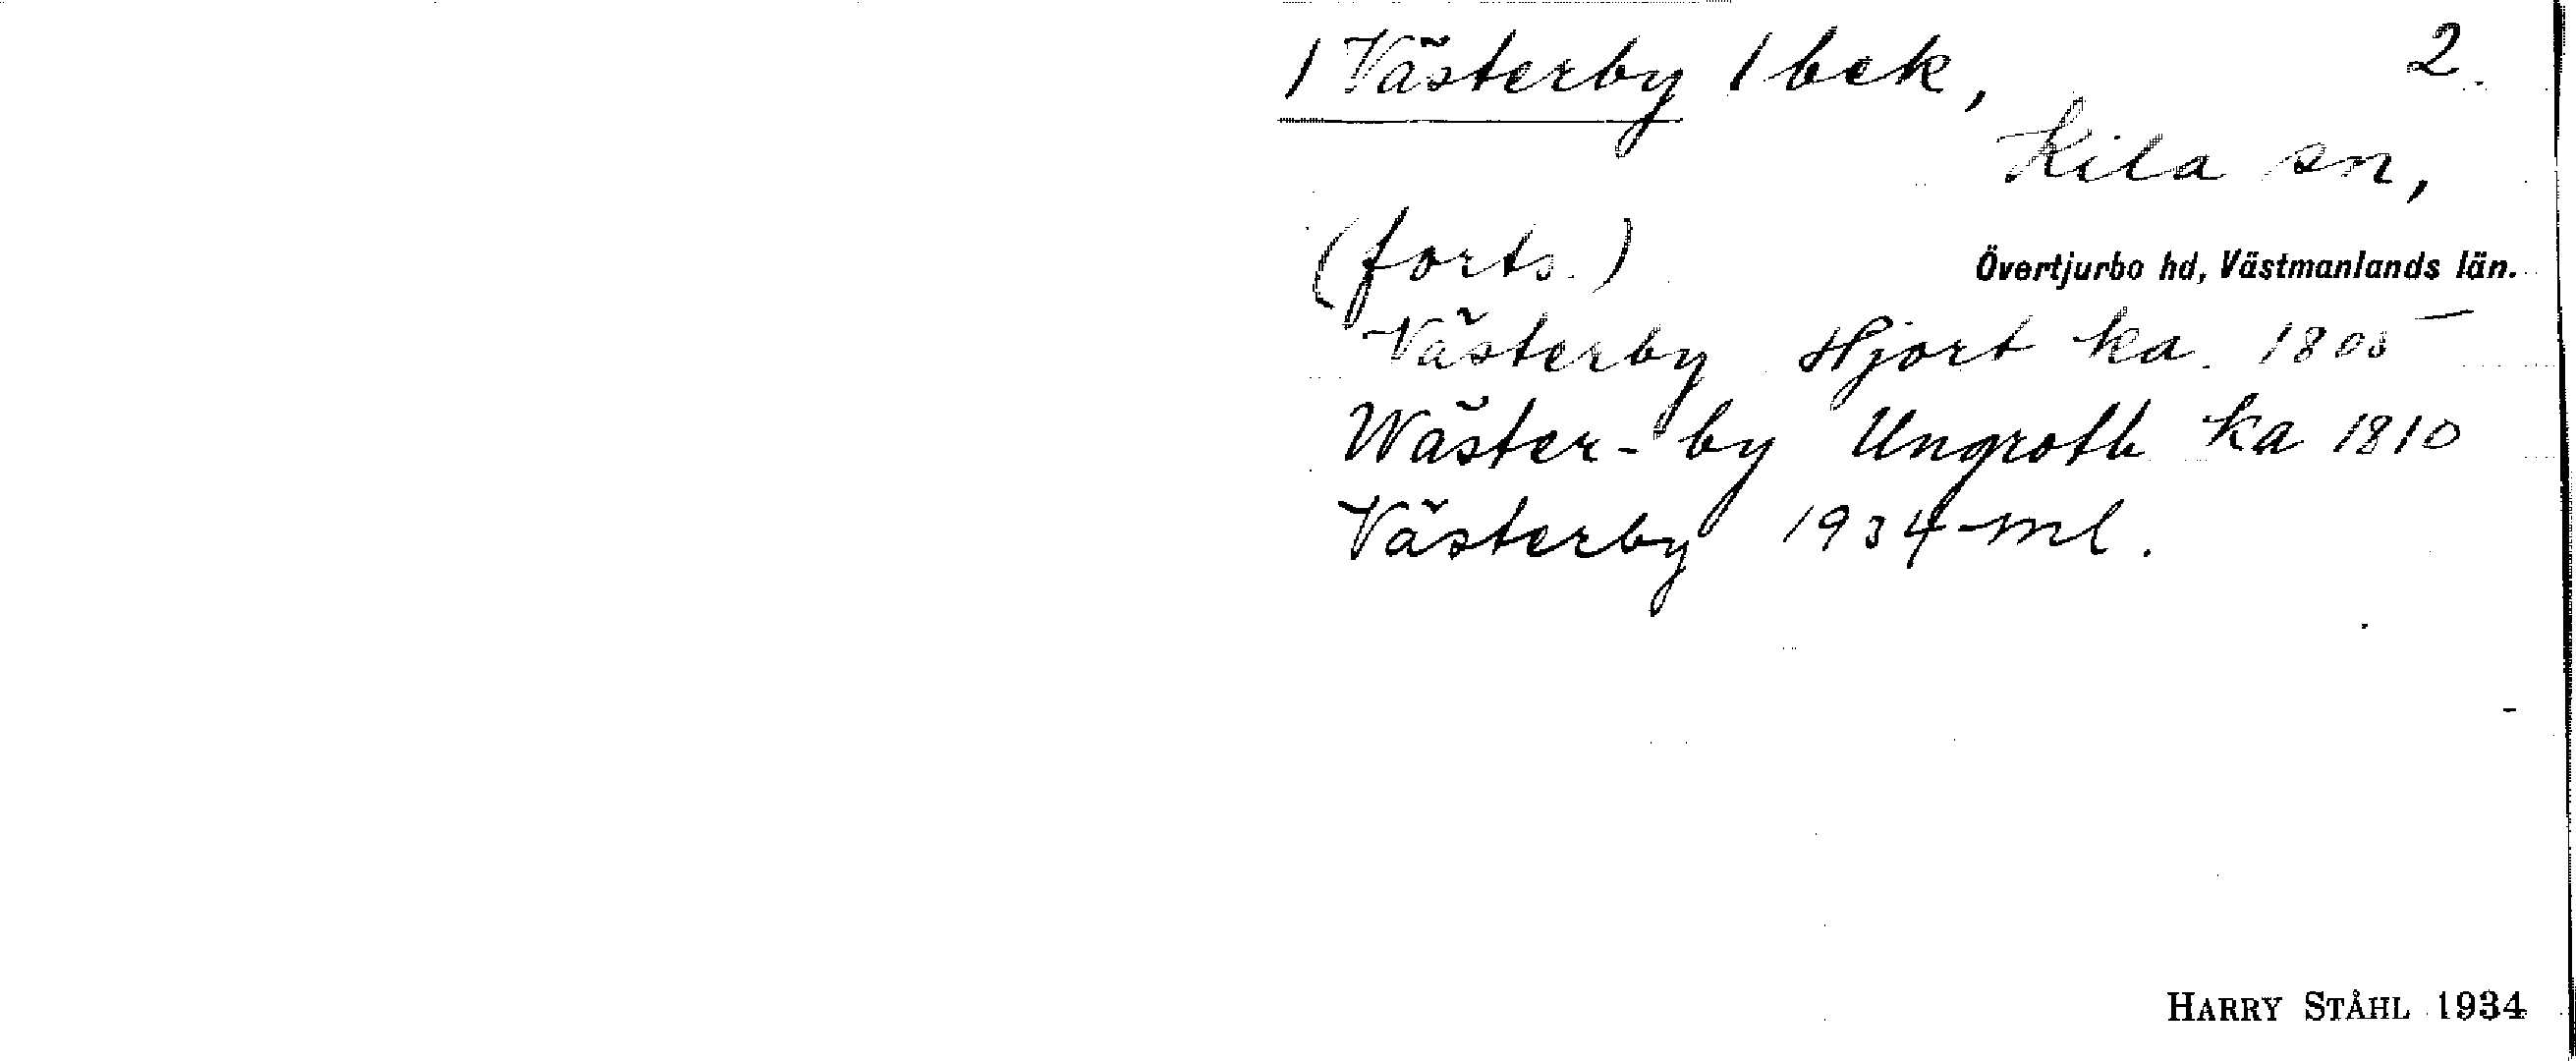 / Västerby / bek, 2.
Kila sn,
(forts.)
Övertjurbo hd, Västmanlands län.
Västerby Hjort ka. 1805
Wäster-by Ungroth ka 1810
Västerby 1934 ml.
HARRY STÅHL 1934